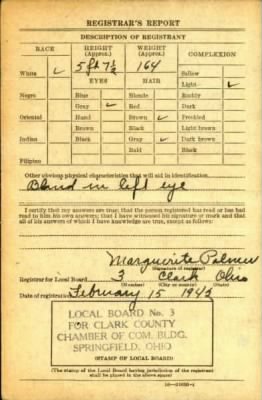 REGISTRAR'S REPORT
DESCRIPTION OF REGISTRANT
RACE HEIGHT (Approx.) WEIGHT (Approx.) COMPLEXION
White ✓ 5 ft 7½ 164 Sallow
EYES HAIR Light ✓
Negro Blue Blonde Ruddy
Gray ✓ Red Dark
Oriental Hazel Brown ✓ Freckled
Brown Black Light brown
Indian Black Gray Dark brown
Bald Black
Filipino
Other obvious physical characteristics that will aid in identification
Blind in left eye
I certify that my answers are true; that the person registered has read or has had
read to him his own answers; that I have witnessed his signature or mark and that
all of his answers of which I have knowledge are true, except as follows:
Marguerite Palmer
(Signature of registrar)
Registrar for Local Board 3 Clark Ohio
(Number) (City or county) (State)
Date of registration February 15 1942
LOCAL BOARD No. 3
FOR CLARK COUNTY
CHAMBER OF COM. BLDG.
SPRINGFIELD, OHIO
(STAMP OF LOCAL BOARD)
(The stamp of the Local Board having jurisdiction of the registrant
shall be placed in the above space)